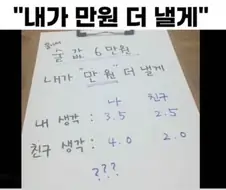 "내가 만원 더 낼게"
술 값 6만원
내가 "만원" 더 낼게
나 친구
내 생각 : 3.5 2.5
친구 생각 : 4.0 2.0
???